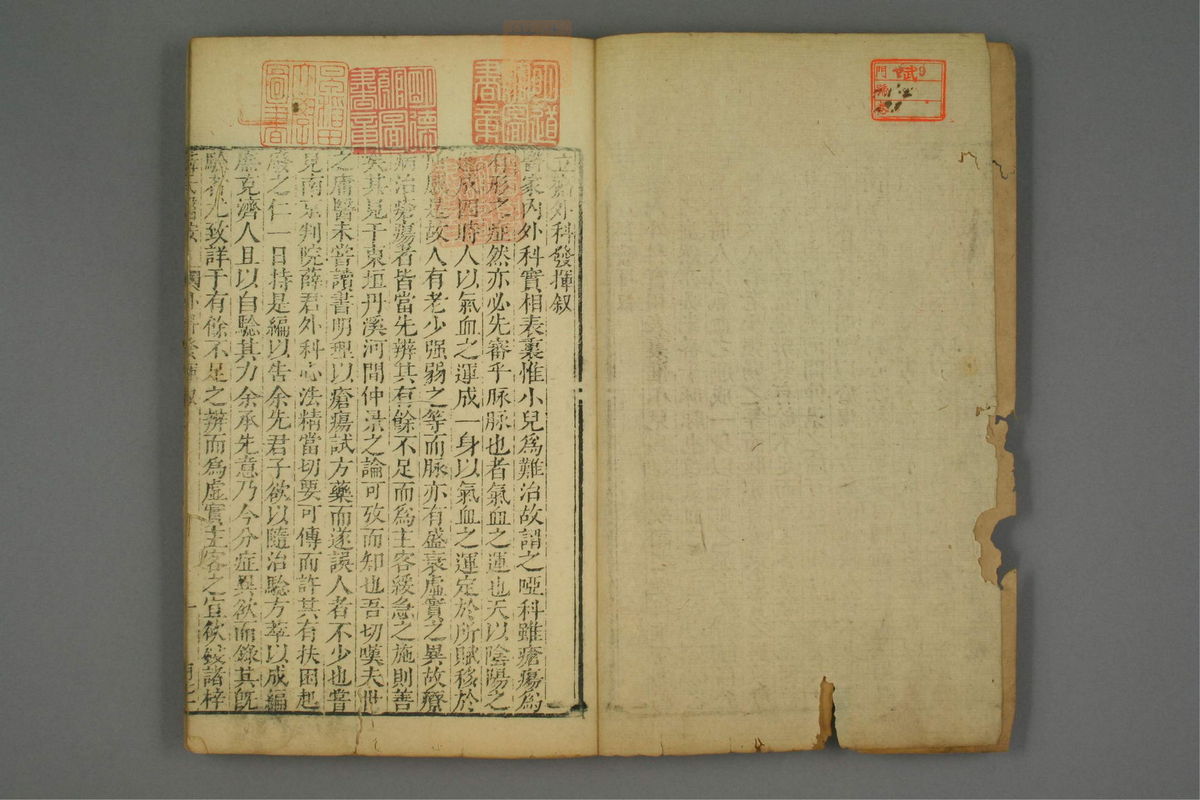 立齋外科發揮叙
醫家內外科實相表裏惟小兒爲難治故謂之啞科雖瘡瘍爲
有形之症然亦必先審乎脉脉也者氣血之運也天以陰陽之
成四時人以氣血之運成一身以氣血之運定於所賦移於
是故人有老少强弱之等而脉亦有盛衰虛實之異故療
病治瘡瘍者皆當先辨其有餘不足而爲主客緩急之施則善
矣其見于東垣丹溪河間仲景之論可攷而知也吾切嘆夫世
之庸醫未嘗讀書明理以瘡瘍試方藥而遂誤人者不少也嘗
見南京判院薛君外科心法精當切要可傳而許其有扶困起
廢之仁一日持是編以告余先君子欲以隨治騐方萃以成編
庶克濟人且以自騐其力余承先意乃今分症異欲而錄其旣
騐者尤致詳于有餘不足之辨而爲虛實主客之宜欲鋟諸梓
門
號